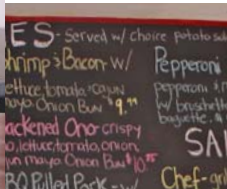 ES - Served w/ choice potato sal
hrimp & Bacon w/
lettuce, tomato, cajun
mayo Onion Bun $9.99
ackened Ono - crispy
o, lettuce, tomato, onion,
jun mayo Onion Bun $10.75
BQ Pulled Pork - w/
Pepperoni
pepperoni &
w/ bruschetta
baguette.
SA
Chef - gr